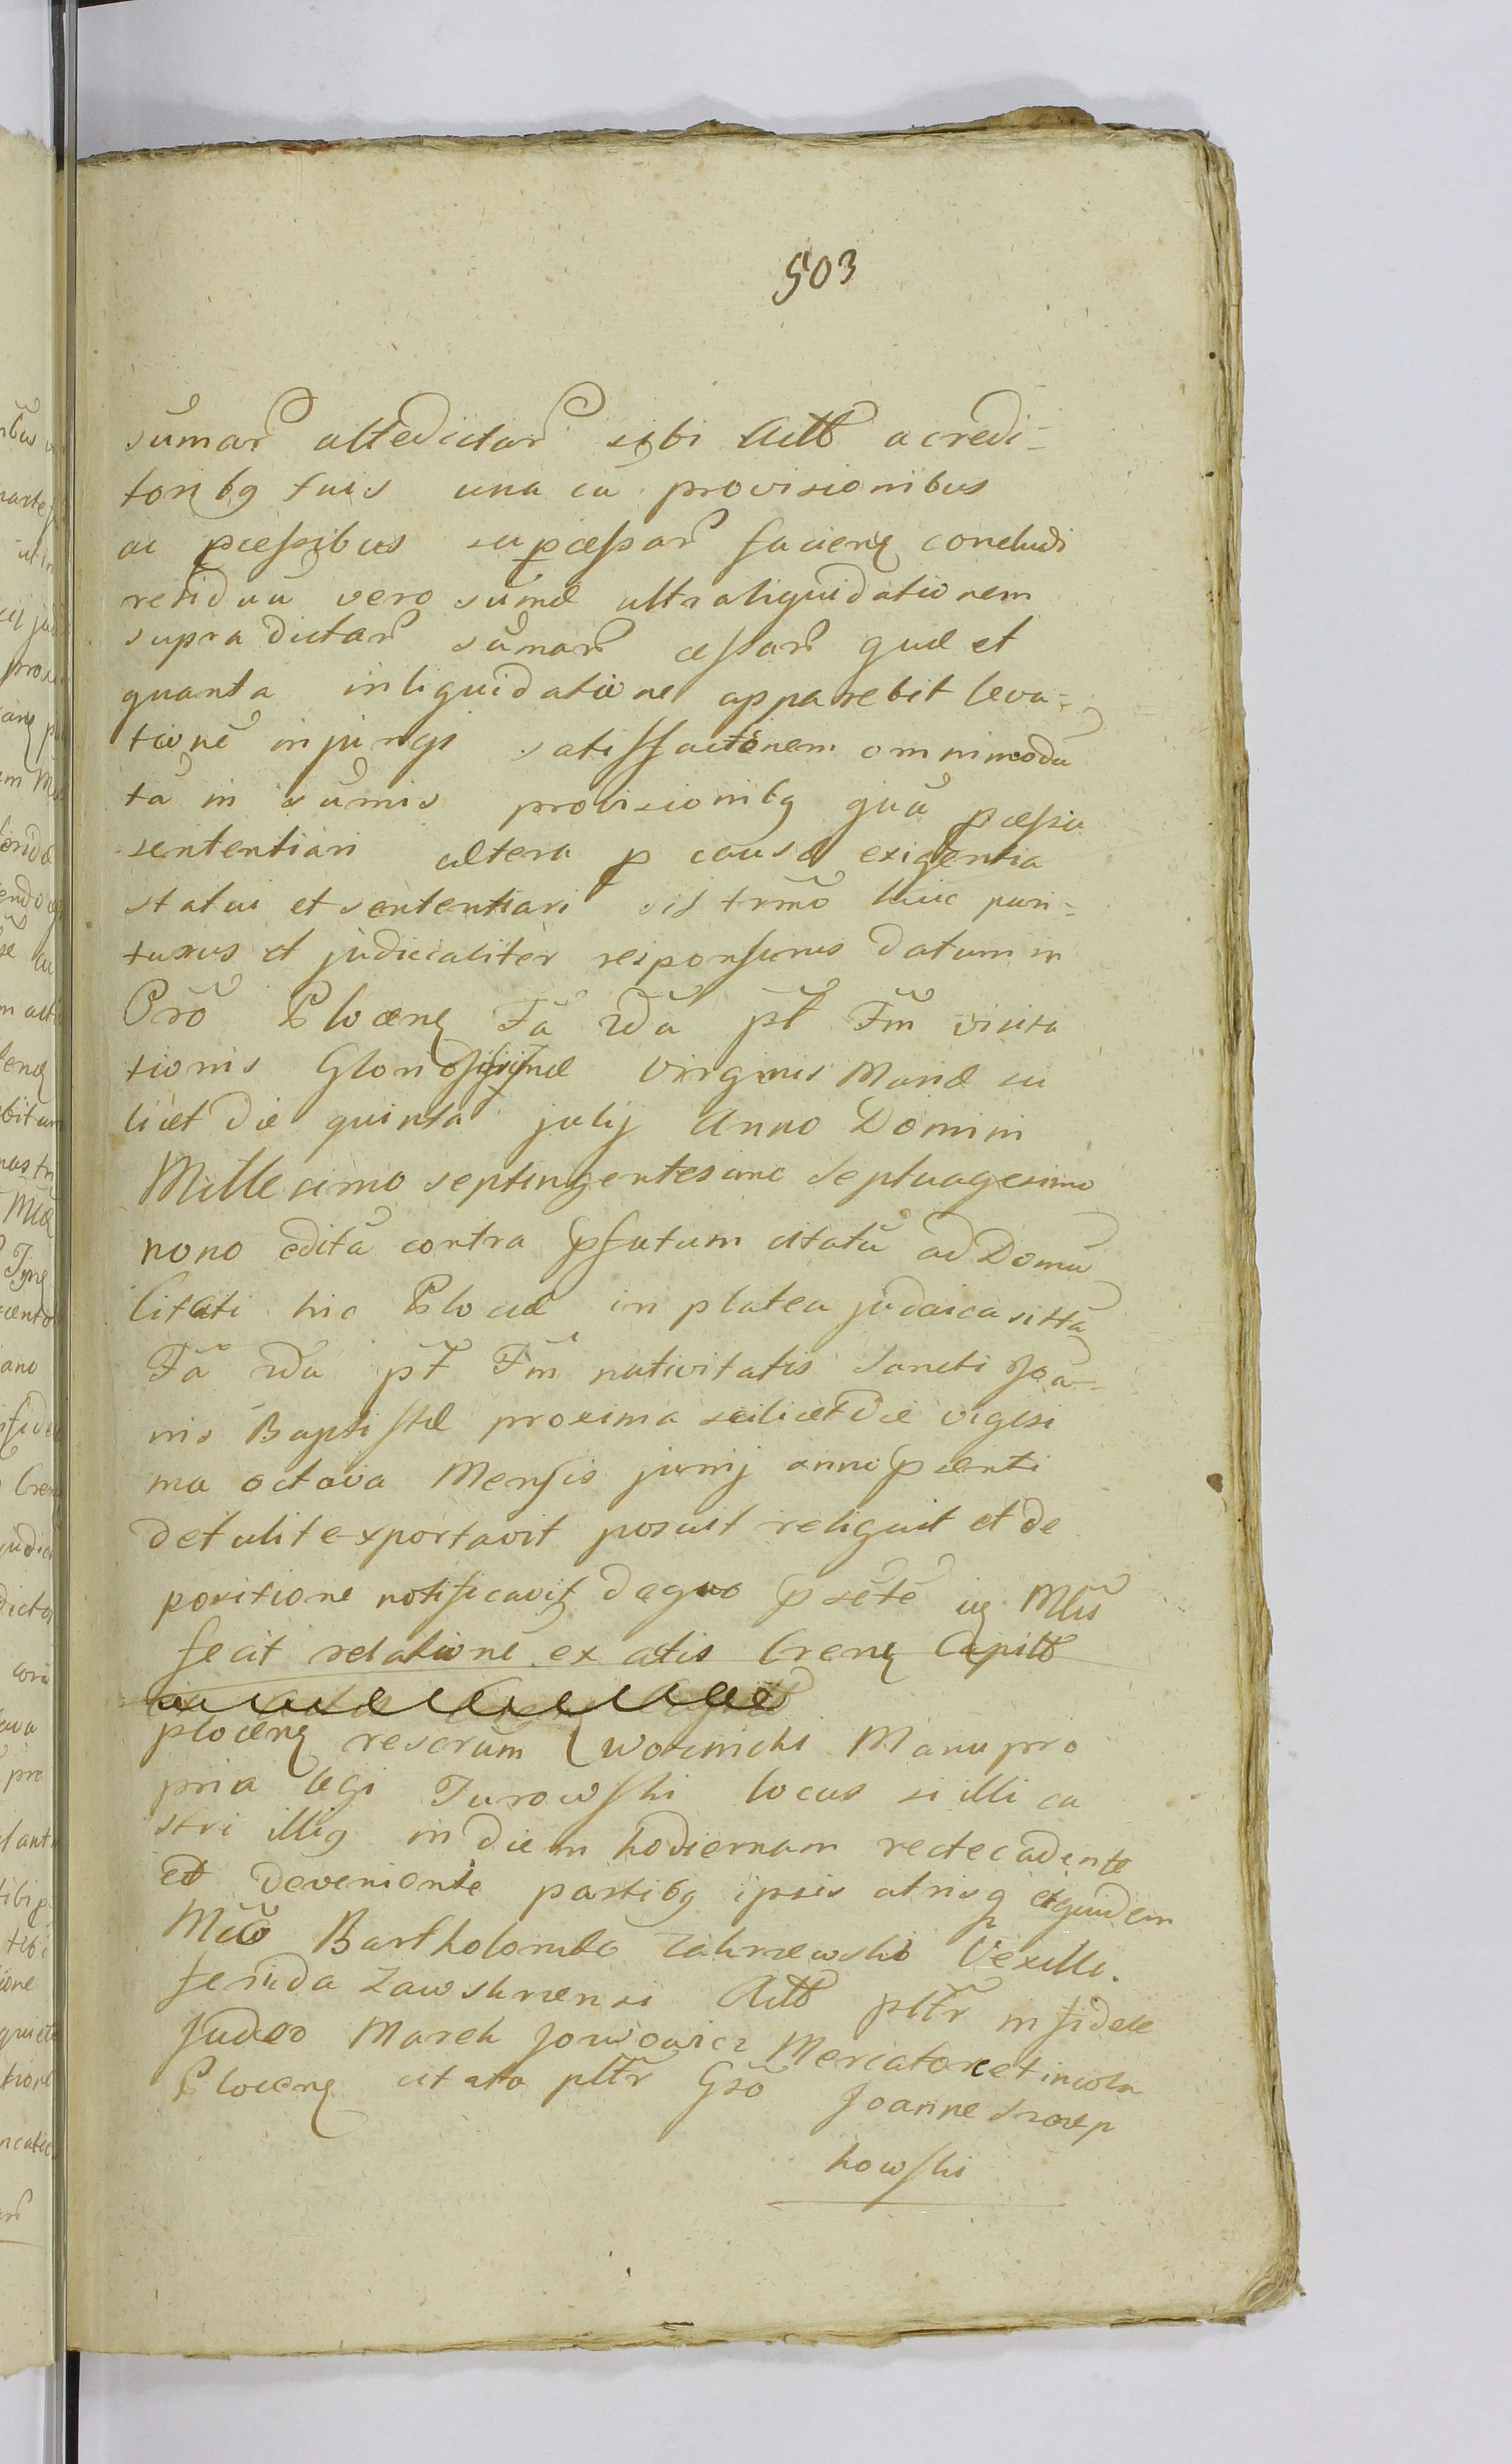 503
sūmar altedictar sibi Actō a credi=
toribq suis una cū provisionibus
ac pcessibus sup cessar facienq concludi
residuū vero sūmæ ultra liquidationem
supra dictar sūmar cessar quæ et
quanta in liquidatione apparebit leva=
tionē injungi satisfactionem omnimodā
tā in sūmis provisionibq quā pcessū
sententiari altera p causæ exigentia
statui et sententiari sis trmō huic pari=
turus et judicialiter responsurus datum in
Crō Plocenq Fā 2dā pt Fm̄ visita
tionis Gloriosissimæ Virginis Mariæ sci
licet die quinta julij Anno Domini
Millesimo septingentesimo Septuagesimo
nono editā contra pfatum citatū ad Domū
Citati hic Plociæ in platea judaica sittā
Fā 2da pt Fm̄ nativitatis Sancti Joā
nis Baptistæ proxima scilicet die vigesi
ma octava Mensis junij anni pænti
detulit exportavit posuit reliquit et de
positione notificavit de quo p sētē iq Mlis
fecit relationē ex actis Crenq Capitl
plocenq rescrum Woznicki Manu pro
pria legi Turowski locus silli ca
stri illiq in diem hodiernam recte cadente
et deveniente partibq ipsis utrisq et quidem
Mcō Bartholomæo Zakrzewski Vexilli.
ferida Zawskrzensi Actō pltr infidele
Judeo Marek Jowowicz Mercatore et incola
Plocenq citato pltr Gsō Joanne Szczep
kowski